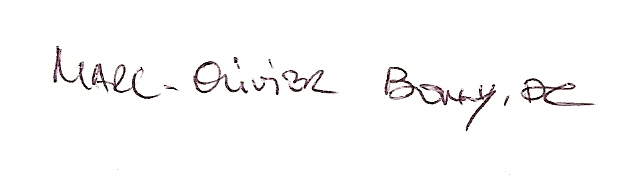 Marc-Olivier Bonny, DC